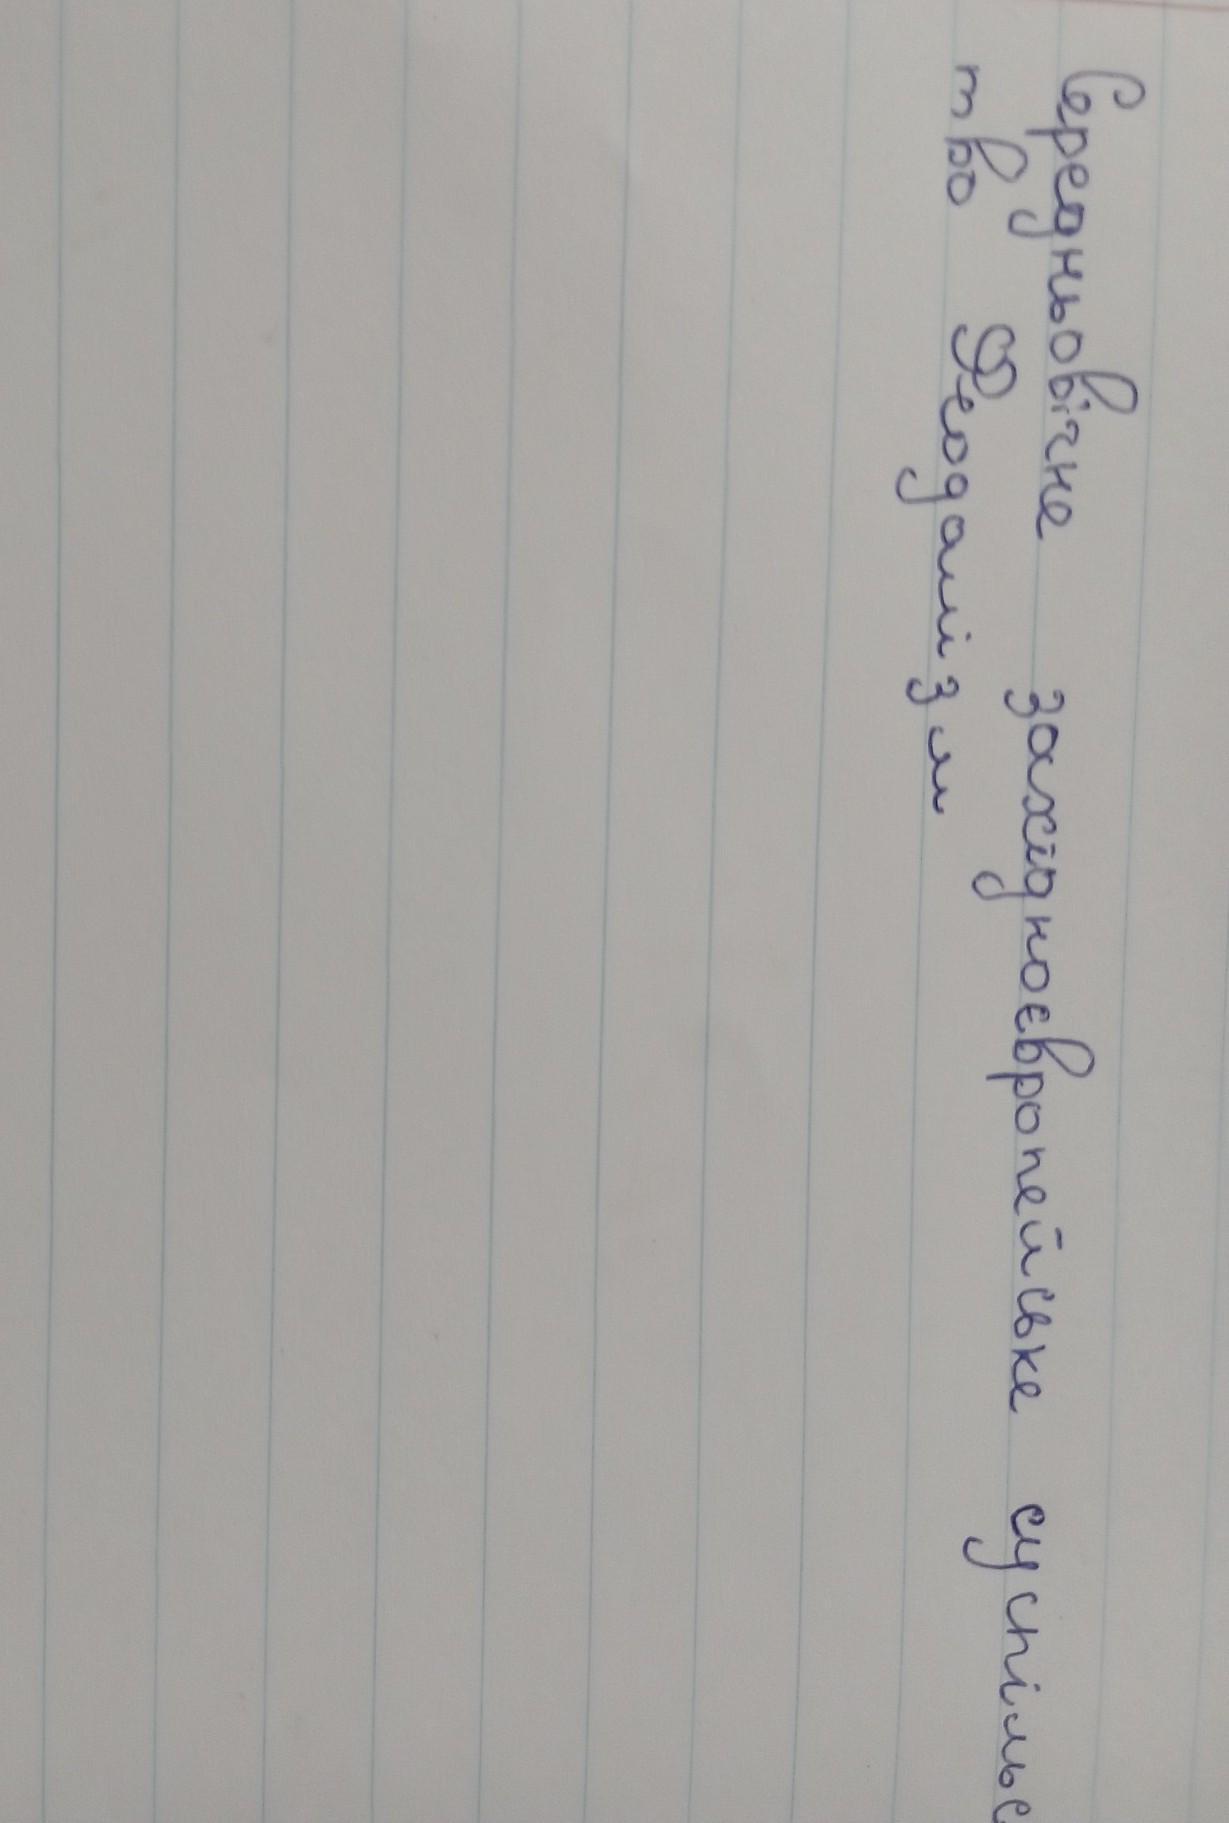 Середньовічне західноєвропейське суспільс
тво Феодалізм